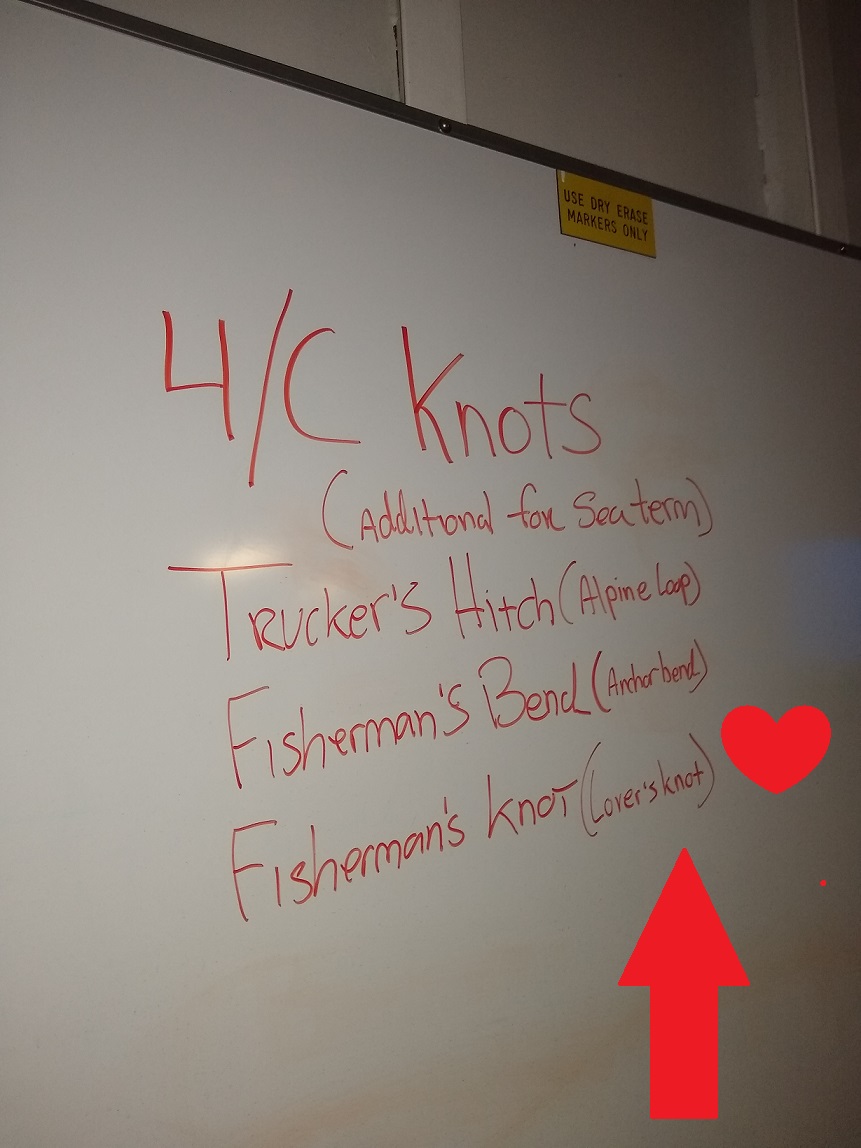 USE DRY ERASE
MARKERS ONLY
4/C Knots
(Additional for Sea term)
Trucker's Hitch (Alpine Loop)
Fisherman's Bend (Anchor bend)
Fisherman's knot (Lover's knot)